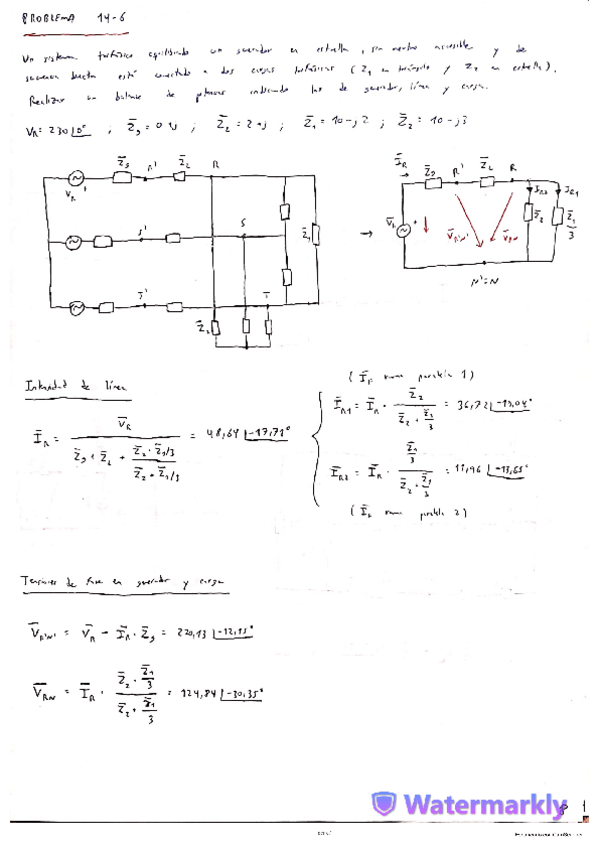 PROBLEMA 14-6
Un sistema trifásico equilibrado un generador en estrella, sin neutro accesible y de
secuencia directa está conectado a dos cargas trifásicas (Z1 en triángulo y Z2 en estrella).
Realizar un balance de potencias indicando las de generador, línea y cargas.
VR = 230 |0° ; Z̄g = ; Z̄L = 2+j ; Z̄1 = 10-j2 ; Z̄2 = 10-j3
Z̄g R' Z̄L R
VR'
S' S
Z̄1
T' T
Z̄2
ĪR Z̄g R' Z̄L R
ĪR2 ĪR1
V̄R'N' V̄RN
Z̄2 Z̄1/3
N'=N
Intensidad de línea
ĪR = V̄R / (Z̄g + Z̄L + (Z̄2 · Z̄1/3) / (Z̄2 + Z̄1/3)) = 48,64 |-17,71°
(ĪR rama paralela 1)
ĪR1 = ĪR · Z̄2 / (Z̄2 + Z̄1/3) = 36,72 |-19,04°
ĪR2 = ĪR · (Z̄1/3) / (Z̄2 + Z̄1/3) = 11,96 |-13,65°
(ĪR rama paralela 2)
Tensiones de fase en generador y cargas
V̄R'N' = V̄R - ĪR · Z̄g = 220,13 |-12,15°
V̄RN = ĪR · (Z̄2 · Z̄1/3) / (Z̄2 + Z̄1/3) = 124,84 |-30,35°
Watermarkly